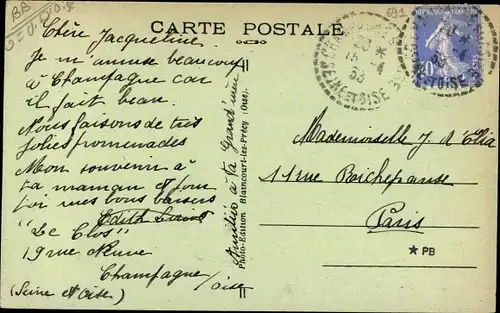 CARTE POSTALE
Chère Jacqueline
Je m'amuse beaucoup
à Champagne car
il fait beau.
Nous faisons de très
jolies promenades
Mon souvenir à
ta maman et pour
toi mes bons baisers
Edith
"Le Clos"
19 rue Neuve
Champagne
/Oise
(Seine et Oise)
Amitiés à ta Grand'mère
Photo-Edition Blaincourt-les-Précy (Oise).
Mademoiselle J. d'Elia
11 rue Roichepanse
Paris
★ PB
691
BB
SEINE-ET-OISE
15 - 4
33
REPUBLIQUE FRANÇAISE
40
POSTES
T-OISE